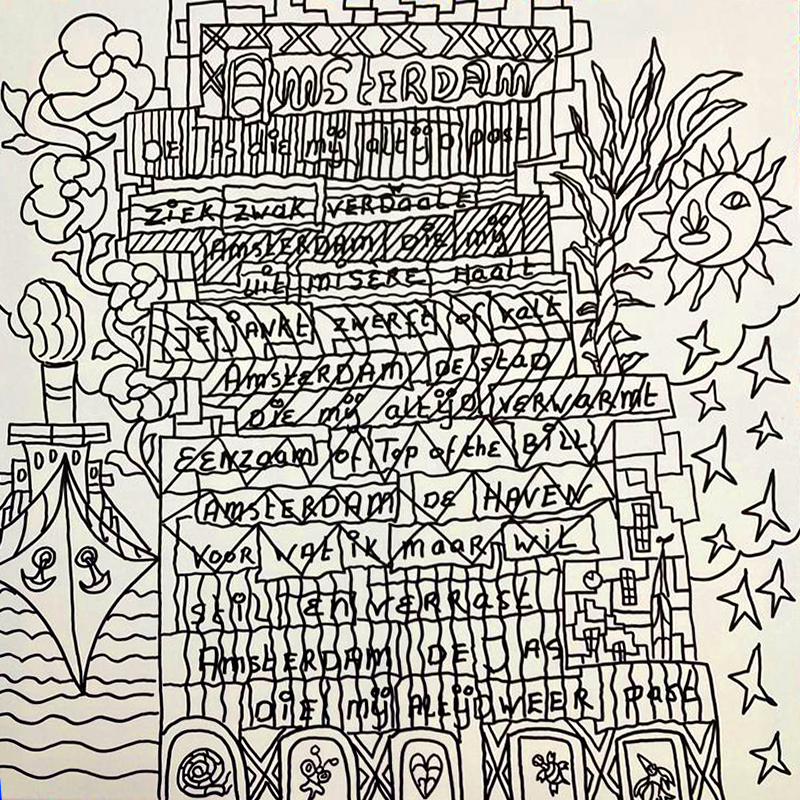 AMSTERDAM
DE JAS die mij altijd past
ZIEK zwak VERDAALT
AMSTERDAM DIE mij
uit MISÈRE Haalt
JE jankt zwerft of valt
AMSTERDAM DE stad
DIE mij altijd VERWARmt
EENzaam of Top of the BiLL
AMSTERDAM DE HAVEN
VOOR wat ik maar wil
stil En verrast
AMStERDAM DE JAS
DIE mij ALtijD WEER past